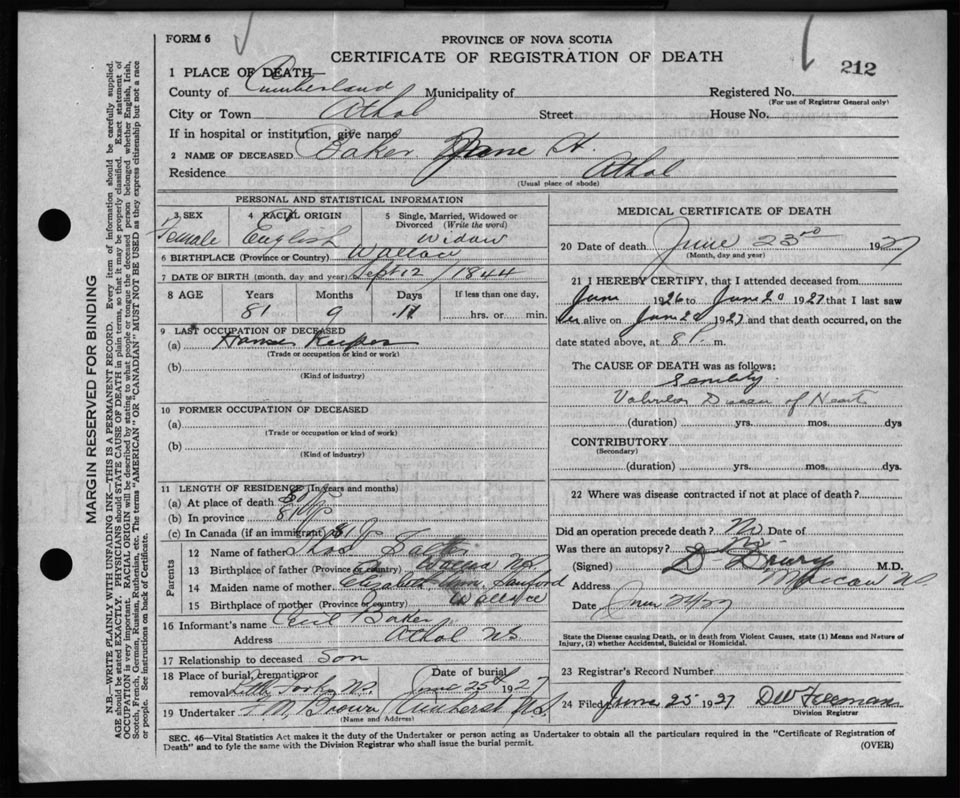 FORM 6
PROVINCE OF NOVA SCOTIA
CERTIFICATE OF REGISTRATION OF DEATH
212
1 PLACE OF DEATH—
County of Cumberland Municipality of Registered No.
(For use of Registrar General only)
City or Town Athol Street House No.
If in hospital or institution, give name
2 NAME OF DECEASED Baker Jane H.
Residence Athol
(Usual place of abode)
PERSONAL AND STATISTICAL INFORMATION
3 SEX 4 RACIAL ORIGIN 5 Single, Married, Widowed or Divorced (Write the word)
Female English Widow
6 BIRTHPLACE (Province or Country) Wallace
7 DATE OF BIRTH (month, day and year) Sept 12 / 1844
8 AGE Years Months Days If less than one day,
81 9 11 hrs. or min.
9 LAST OCCUPATION OF DECEASED
(a) House Keeper
(Trade or occupation or kind or work)
(b)
(Kind of industry)
10 FORMER OCCUPATION OF DECEASED
(a)
(Trade or occupation or kind of work)
(b)
(Kind of industry)
11 LENGTH OF RESIDENCE (In years and months)
(a) At place of death
(b) In province 81 yrs
(c) In Canada (if an immigrant) 81
Parents
12 Name of father Thos
13 Birthplace of father (Province or country) Wallace N.S.
14 Maiden name of mother Elizabeth Ann
15 Birthplace of mother (Province or country) Wallace
16 Informant's name Cecil Baker
Address Athol NS
17 Relationship to deceased Son
18 Place of burial, cremation or removal Little Forks NS. Date of burial June 25th 1927
19 Undertaker F M Brown Amherst NS.
(Name and Address)
MEDICAL CERTIFICATE OF DEATH
20 Date of death June 23rd 1927
(Month, day and year)
21 I HEREBY CERTIFY, that I attended deceased from
June 1926 to June 20 1927 that I last saw
her alive on June 20 1927 and that death occurred, on the
date stated above, at 8 P. m.
The CAUSE OF DEATH was as follows:
Senility
Valvular Disease of Heart
(duration) yrs. mos. dys
CONTRIBUTORY
(Secondary)
(duration) yrs. mos. dys.
22 Where was disease contracted if not at place of death?
Did an operation precede death? No Date of
Was there an autopsy? No
(Signed) D Drury M.D.
Address Maccan NS
Date June 24/27
State the Disease causing Death, or in death from Violent Causes, state (1) Means and Nature of
Injury, (2) whether Accidental, Suicidal or Homicidal.
23 Registrar's Record Number
24 Filed June 25 1927 DW Freeman
Division Registrar
SEC. 46—Vital Statistics Act makes it the duty of the Undertaker or person acting as Undertaker to obtain all the particulars required in the "Certificate of Registration of
Death" and to fyle the same with the Division Registrar who shall issue the burial permit.
(OVER)
MARGIN RESERVED FOR BINDING
N.B.—WRITE PLAINLY WITH UNFADING INK—THIS IS A PERMANENT RECORD. Every item of information should be carefully supplied.
AGE should be stated EXACTLY. PHYSICIANS should STATE CAUSE OF DEATH in plain terms, so that it may be properly classified. Exact statement of
OCCUPATION is very important. RACIAL ORIGIN will be described by stating to what people or tongue the deceased person belonged whether English, Irish,
Scotch, French, German, Russian, Ruthenian, etc. The terms "AMERICAN" OR "CANADIAN" MUST NOT BE USED as they express citizenship but not a race
or people. See instructions on back of Certificate.